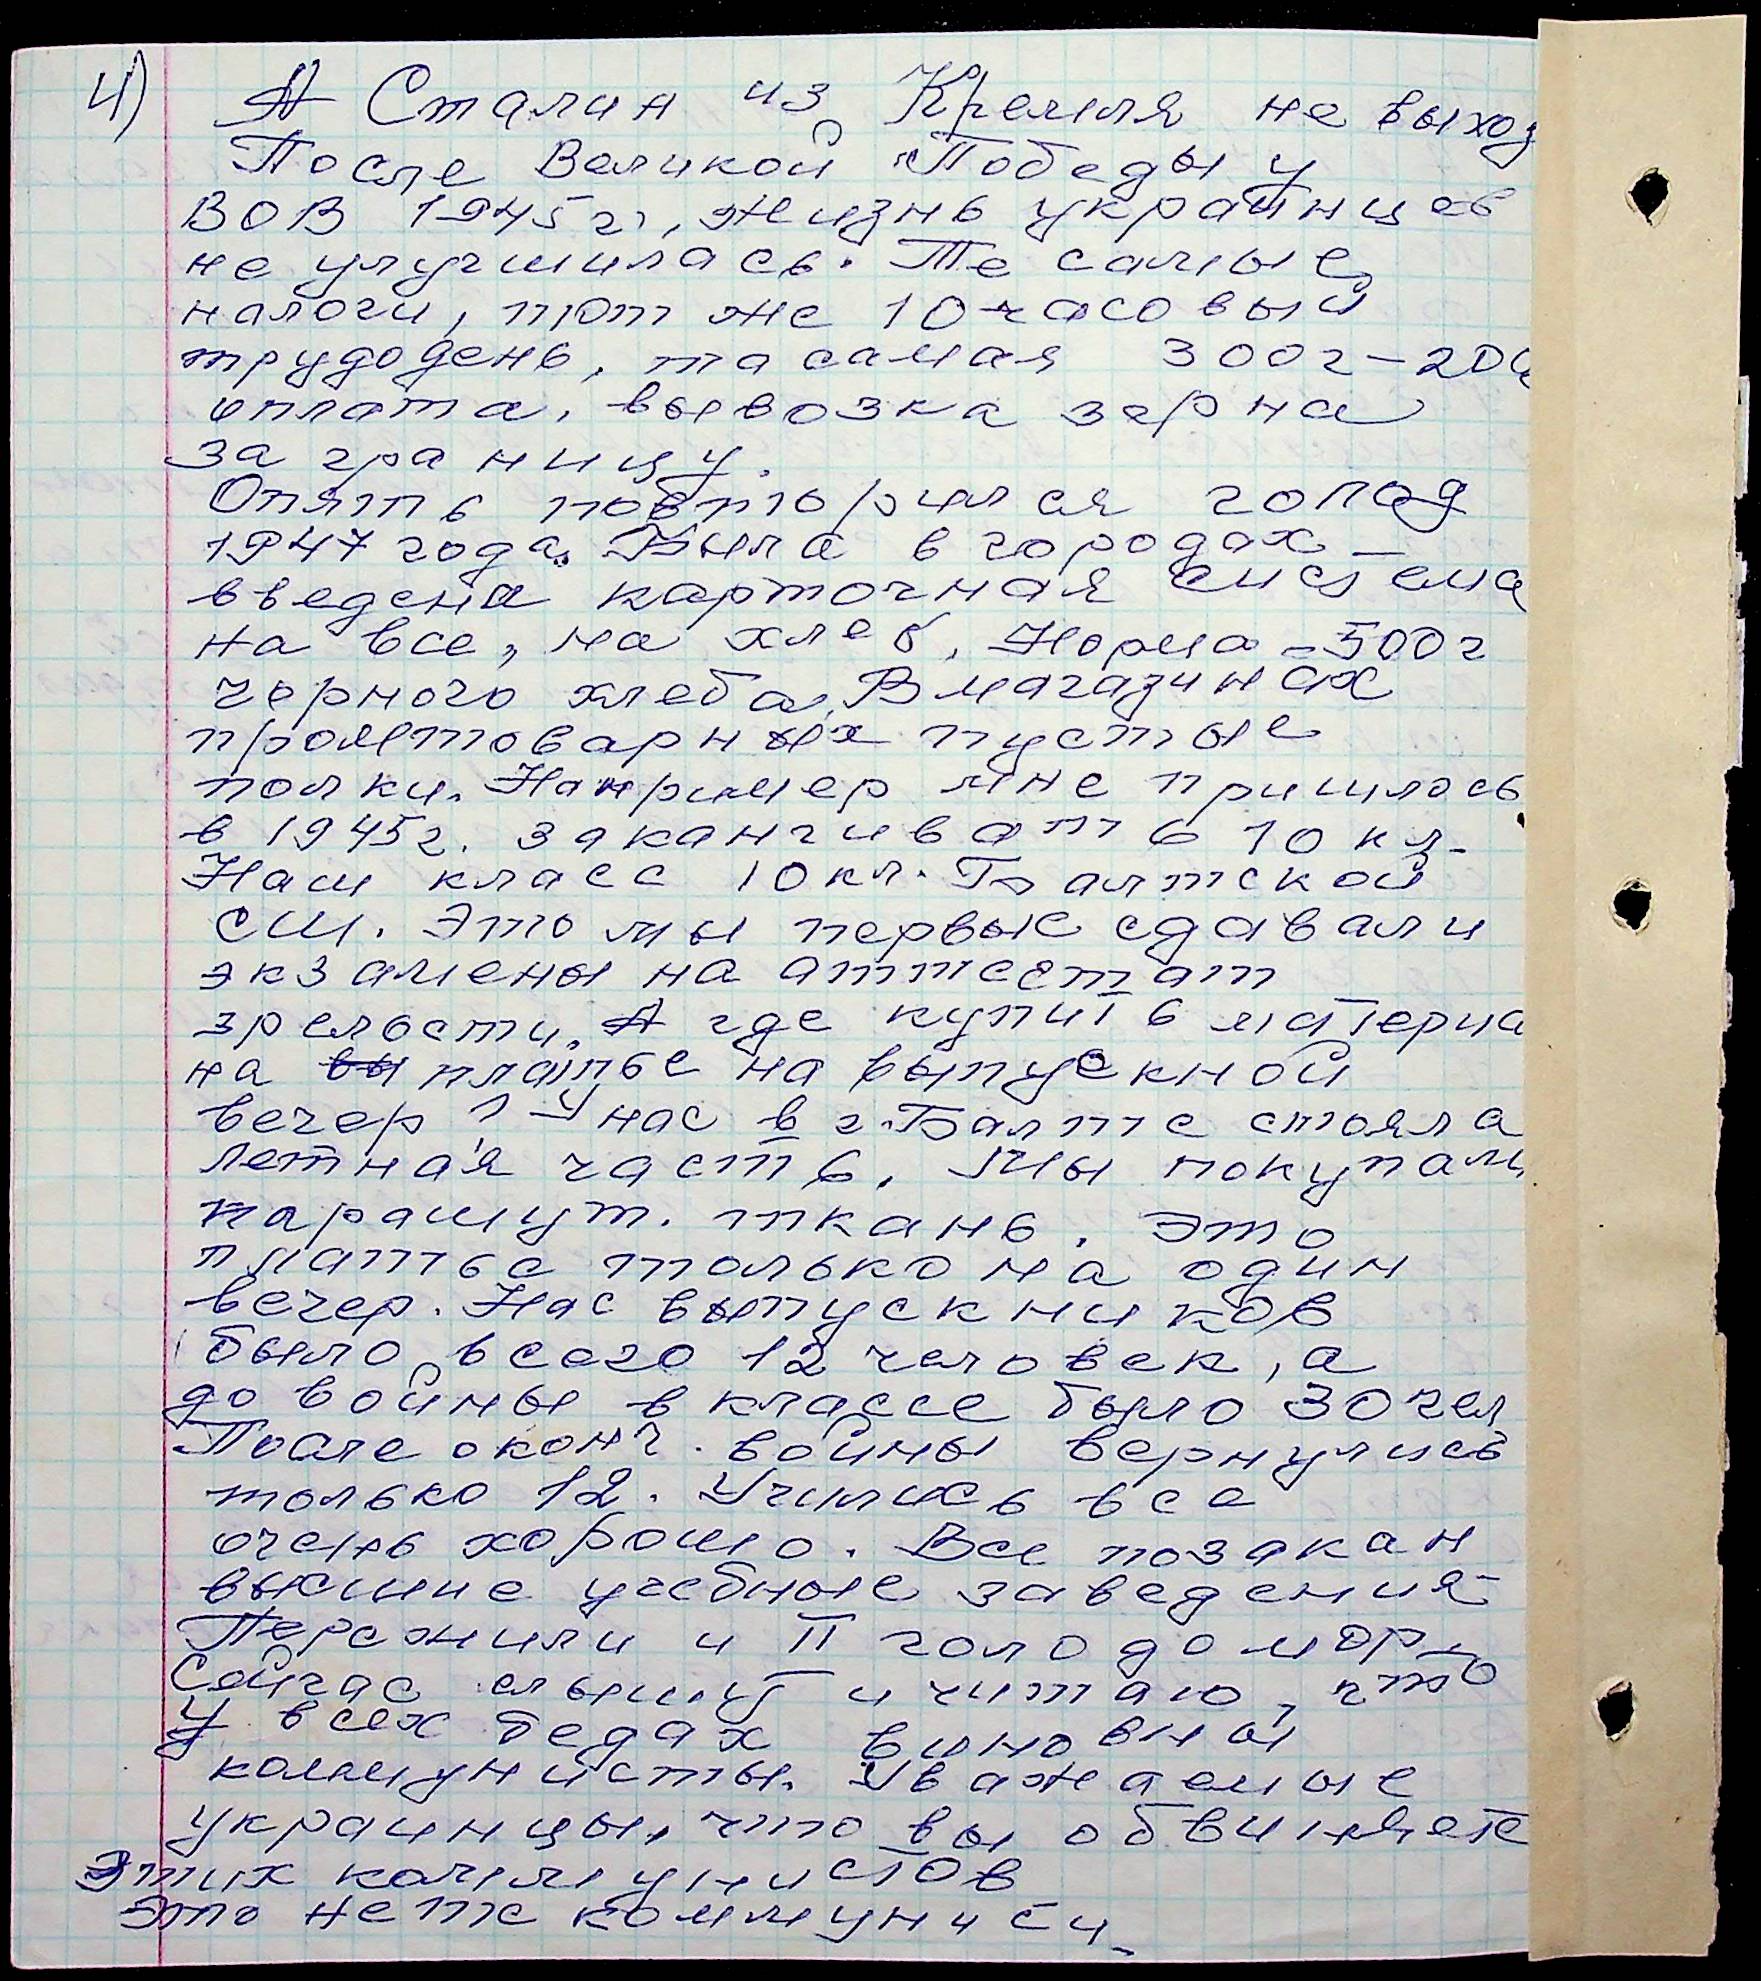 4) А Сталин из Кремля не выход
После Великой Победы у
ВОВ 1945г, жизнь украинцев
не улучшилась. Те самые
налоги, тот же 10 часовый
трудодень, та самая 300г-200
оплата, вывозка зерна
за границу.
Опять повторился голод
1947 года. Была в городах –
введена карточная система
на все, на хлеб. Норма – 500г
черного хлеба. В магазинах
промтоварных пустые
полки. Например мне пришлось
в 1945г. заканчивать 10 кл.
Наш класс 10 кл. Балтской
сш. Это мы первые сдавали
экзамены на аттестат
зрелости. А где купить материа
на вы платье на выпускной
вечер? У нас в г. Балте стояла
летная часть. Мы покупали
парашут. ткань. Это
платье только на один
вечер. Нас выпускников
было всего 12 человек, а
до войны в классе было 30 чел
После оконч. войны вернулись
только 12. Учились все
очень хорошо. Все позакан
высшие учебные заведения
Пережили и II голодомор.
Сейчас слышу и читаю, что
У всех бедах виновны
коммунисты. Уважаемые
украинцы, что вы обвиняете
Этих коммунистов
Это не те коммунисти.